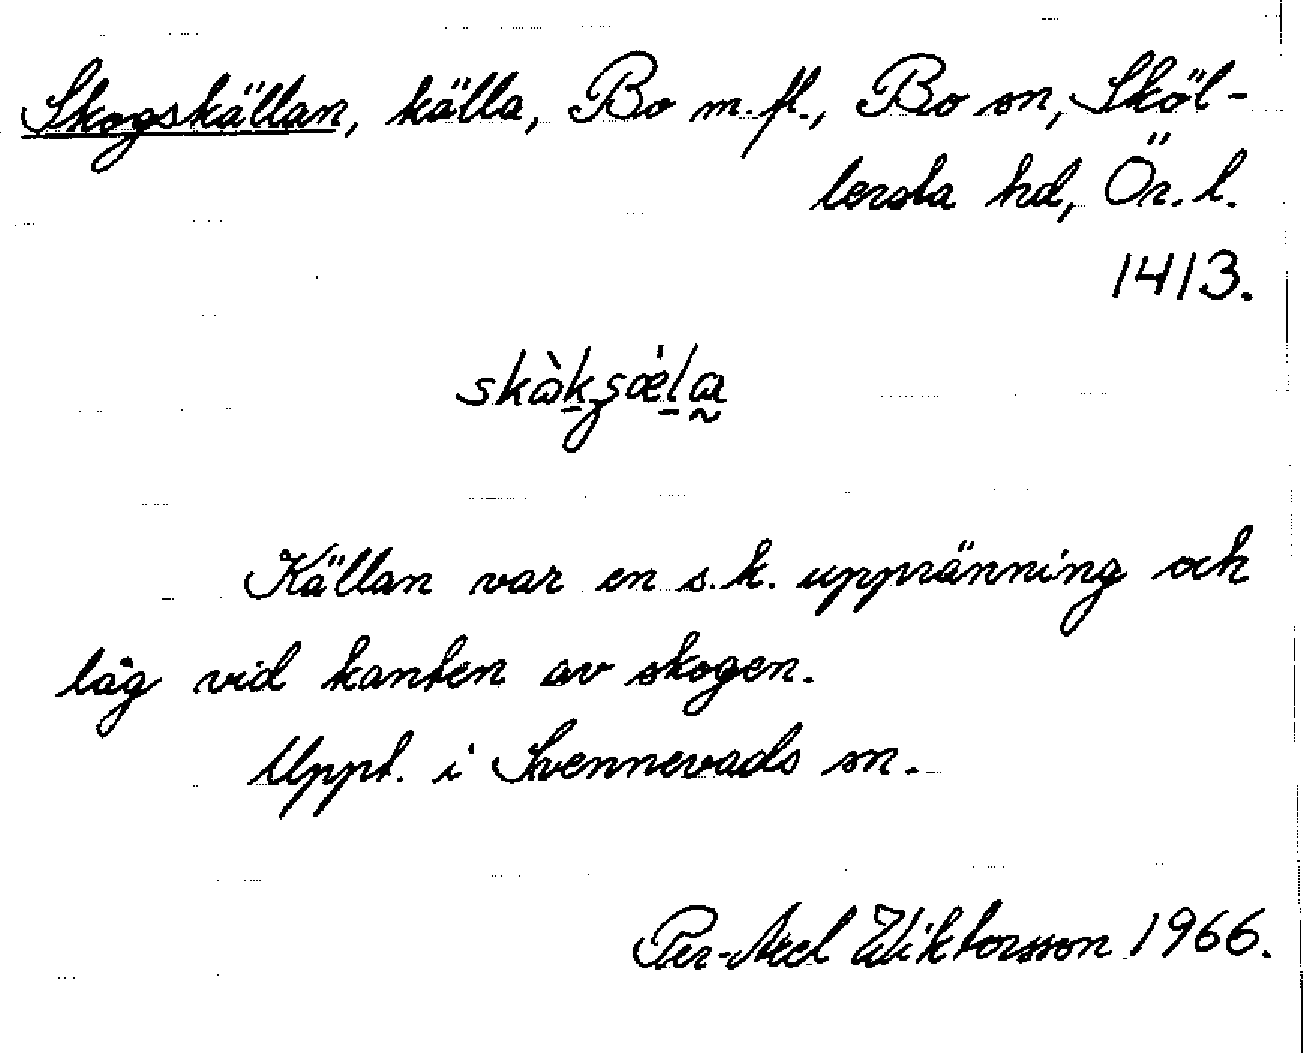 Skogskällan, källa, Bo m.fl., Bo sn, Sköl-
lersta hd, Ör. l.
1413.
Källan var en s.k. uppränning och
låg vid kanten av skogen.
Uppt. i Svennevads sn.
Per-Axel Wiktorsson 1966.